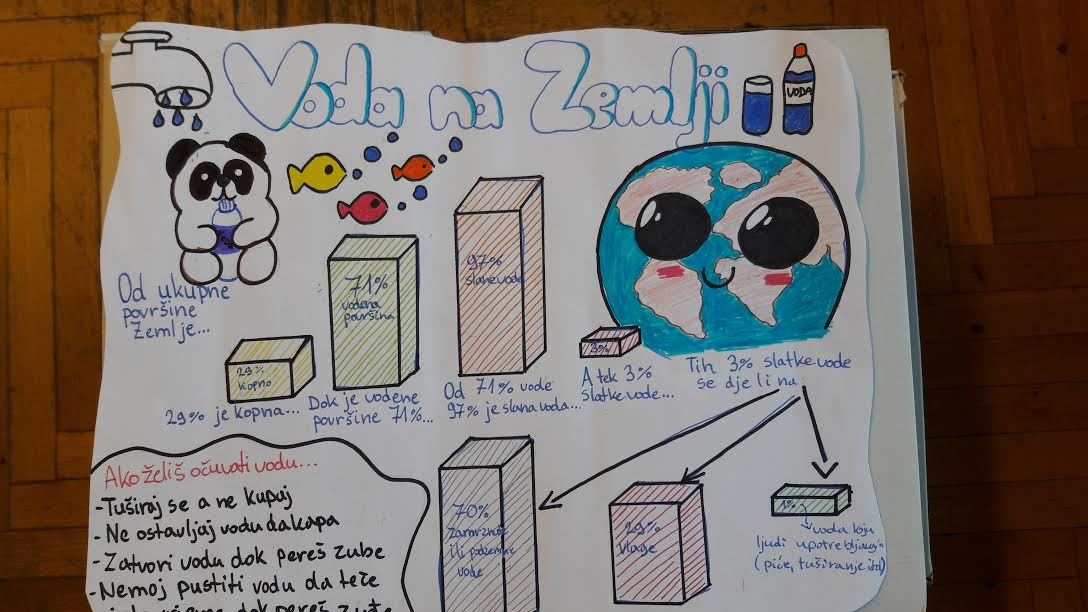 Voda na Zemlji
VODA
Od ukupne
površine
Zemlje...
29%
kopno
29% je kopna...
71%
vodena
površina
Dok je vodene
površine 71%...
97%
slane vode
Od 71% vode
97% je slana voda...
3%
A tek 3%
slatke vode...
Tih 3% slatke vode
se dijeli na
70%
Zamrznute
ili podzemne
vode
29%
vlage
1%
voda koju
ljudi upotrebljavaju
(piće, tuširanje itd)
Ako želiš očuvati vodu...
-Tuširaj se a ne kupaj
-Ne ostavljaj vodu da kapa
-Zatvori vodu dok pereš zube
-Nemoj pustiti vodu da teče
dok pereš